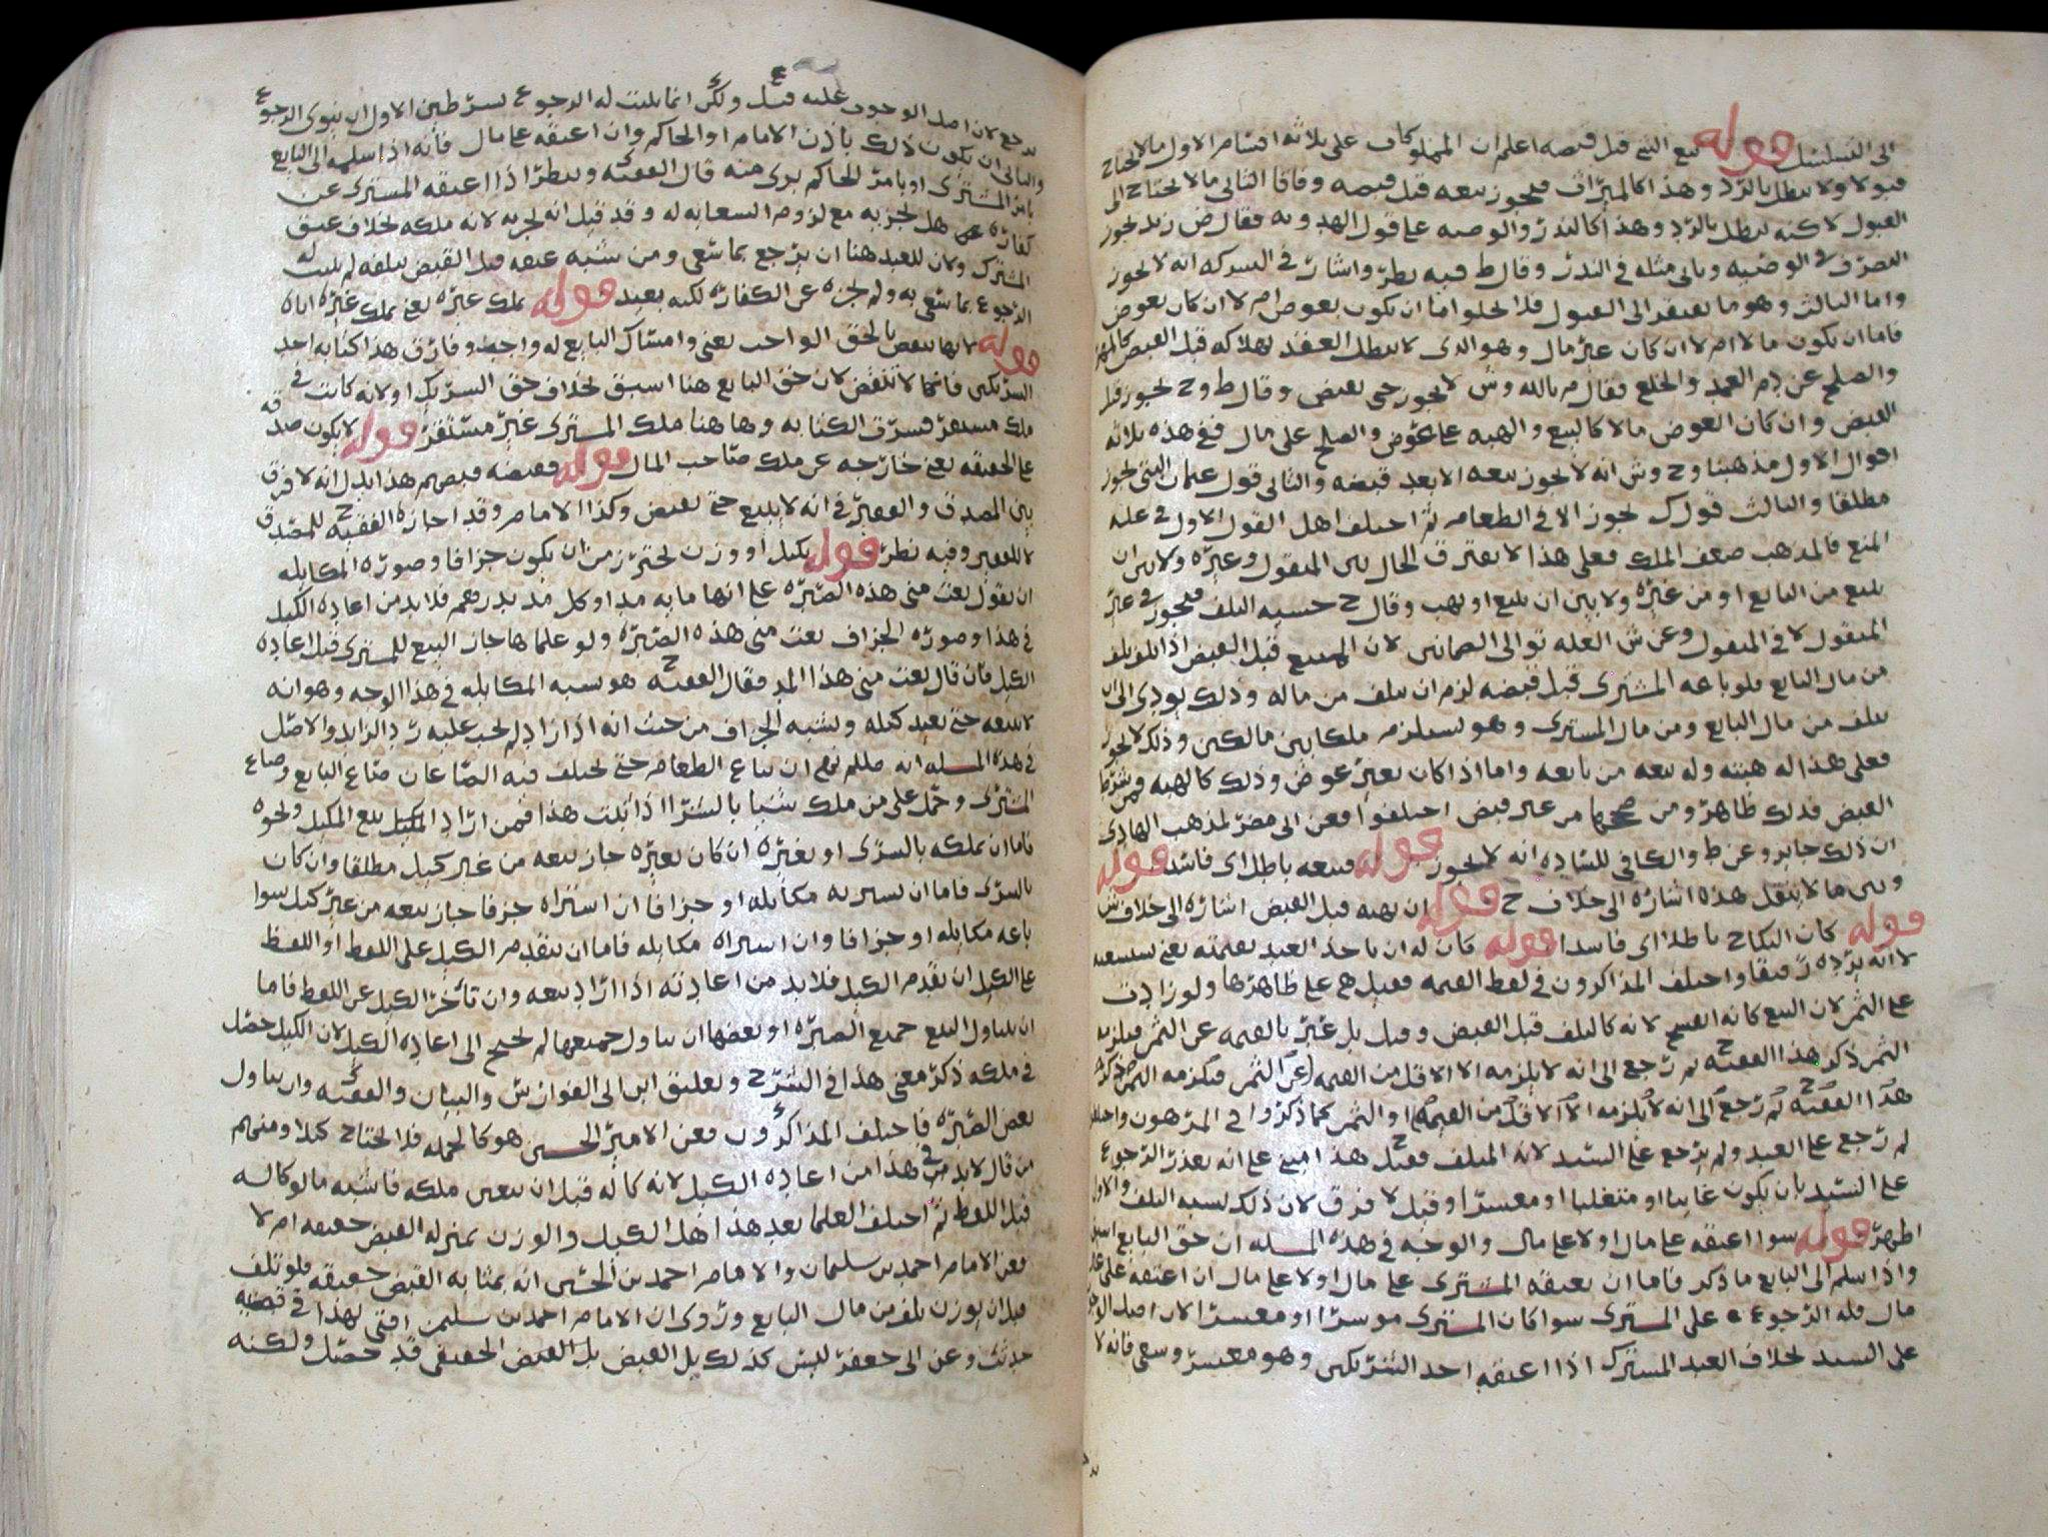 الى التسلسل قوله بيع الشي قبل قبضه اعلم ان المملوكات على ثلاثة اقسام الاول ما لا يحتاج
قبولا ولا يبطل بالرد وهذا كالميراث فيجوز بيعه قبل قبضه وفاقا الثاني ما لا يحتاج الى
القبول لاكنه يبطل بالرد وهذا كالنذر والوصيه على قول الهدويه فقال ض زيد يجوز
التصرف في الوصيه وياتي مثله في النذر وقال ط فيه نظر واشار في الشركه انه لا يجوز
واما الثالث وهو ما يفتقر الى القبول فلا يخلوا اما ان يكون بعوض ام لا ان كان بعوض
فاما ان يكون مالا ام لا ان كان غير مال وهو الذي لا يبطل العقد بهلاكه قبل القبض كالمهر
والصلح عن دم العمد والخلع فقال م بالله وش لا يجوز حتى يقبض وقال ط وح يجوز قبل
القبض وان كان العوض مالا كالبيع والهبه على عوض والصلح على مال ففي هذه ثلاثه
اقوال الاول مذهبنا وح وش انه لا يجوز بيعه الا بعد قبضه والثاني قول عثمان البتي يجوز
مطلقا والثالث قول ك يجوز الا في الطعام ثم اختلف اهل القول الاول في عله
المنع فالمذهب ضعف الملك فعلى هذا لا يفترق الحال بين المنقول وغيره ولا بين ان
يبيع من البايع او من غيره ولا بين ان يبيع او يهب وقال ح خشيه التلف فيجوز في غير
المنقول لا في المنقول وعن ش العله توالي الضمانين لان المبيع قبل القبض اذا تلف تلف
من مال البايع فلو باعه المشتري قبل قبضه لزم ان يتلف من ماله وذلك يودي الى ان
يتلف من مال البايع ومن مال المشتري وهو يستلزم ملكا بين مالكين وذلك لا يجوز
فعلى هذا له هبته وله بيعه من بايعه واما اذا كان بغير عوض وذلك كالهبه فمن شرط
القبض فذلك ظاهر ومن صححها من غير قبض اختلفوا فعن ابي مضر لمذهب الهادي
ان ذلك جايز وعن ط والكافي للساده انه لا يجوز قوله فبيعه باطل اي فاسد قوله
وبين ما لا ينقل هذه اشاره الى خلاف ح قوله ان يهبه قبل القبض اشاره الى خلاف ش
قوله كان النكاح باطلا اي فاسدا قوله كان له ان ياخذ العبد بقيمته يعني
لانه يرده رقيقا واختلف المذاكرون في لفظ القيمه فقيل هي على ظاهرها ولو زادت
على الثمن لان البيع كانه انفسخ لانه كالتلف قبل القبض وقيل بل عبر بالقيمه عن الثمن فيلزمه
الثمن ذكر هذا الفقيه ح ثم رجع الى انه لا يلزمه الا الاقل من القيمه
هذا الفقيه ح ثم رجع الى انه لا يلزمه الا الاقل من القيمه او الثمن كما ذكروا في المرهون
لم رجع على العبد ولم يرجع على السيد لانه المتلف فقيل ح هذا مبني على انه تعذر الرجوع
على السيد بان يكون غايبا او متغلبا او معسرا وقيل لا فرق لان ذلك يشبه التلف والاول
اظهر قوله سوا اعتقه على مال او لا على مال والوجه في هذه المسله ان حق البايع اسبق
واذا سلم الى البايع ما ذكر فاما ان يعتقه المشتري على مال او لا على مال ان اعتقه على غير
مال فله الرجوع على المشتري سوا كان المشتري موسرا او معسرا لان اصل الوجوب
على السيد بخلاف العبد المشترك اذا اعتقه احد الشريكين وهو معسر وسعى فانه لا
يرجع لان اصل الوجوب عليه قيل ولكن انما يثبت له الرجوع بشرطين الاول ان ينوي الرجوع
والثاني ان يكون ذلك باذن الامام او الحاكم وان اعتقه على مال فانه اذا سلمه الى البايع
بامر المشتري او بامر الحاكم بري منه قال الفقيه وينظر اذا اعتقه المشتري عن
كفارته هل يجزيه مع لزوم السعايه له وقد قيل انه يجزيه لانه ملكه بخلاف عتق
المشترك ولان للعبد هنا ان يرجع بما سعى ومن شبه عتقه قبل القبض بتلفه لم يثبت له
الرجوع بما سعى به ولم يجزه عن الكفاره لكنه بعيد قوله بملك غيره يعني بملك غيره اياه
قوله لانها تنقص بالحق الواجب يعني وامساك البايع له واجب وفارق هذا كتابه احد
الشريكين فانها لا تنقض لان حق البايع هنا اسبق بخلاف حق الشريك ولانه كاتب في
ملك مستقر فسرت الكتابه وهاهنا ملك المشتري غير مستقر قوله لا يكون صدقه
على الحقيقه يعني خارجه عن ملك صاحب المال قوله فقبضه قبضهم هذا يدل انه لا فرق
بين المصدق والفقير في انه لا يبيع حتى يقبض وكذا الامام وقد اجازه الفقيه ح للمصدق
لا للفقير وفيه نظر قوله بكيل او وزن يحترز من ان يكون جزافا وصوره المكايله
ان يقول بعت مني هذه الصبره على انها مايه مد او كل مد بدرهم فلا بد من اعاده الكيل
في هذا وصوره الجزاف بعت مني هذه الصبره ولو علماها جاز البيع للمشتري قبل اعاده
الكيل فان قال بعت مني هذا المد فقال الفقيه ح هو يشبه المكايله في هذا الوجه وهو انه
لا يبيعه حتى يعيد كيله ويشبه الجزاف من حيث انه اذا زاد لم يجب عليه رد الزايد والاصل
في هذه المسله انه صللم نهى ان يباع الطعام حتى يختلف فيه الصاعان صاع البايع وصاع
المشتري وحمل على من ملك شيا بالشرا اذا ثبت هذا فمن اراد بيع المكيل ونحوه
فاما ان يملكه بالشرى او بغيره ان كان بغيره جاز بيعه من غير كيل مطلقا وان كان
بالشرى فاما ان يشتريه مكايله او جزافا ان اشتراه جزافا جاز بيعه من غير كيل سوا
باعه مكايله او جزافا وان اشتراه مكايله فاما ان يتقدم الكيل على اللفظ او اللفظ
على الكيل ان تقدم الكيل فلا بد من اعادته اذا اراد بيعه وان تاخر الكيل عن اللفظ فاما
ان يتناول البيع جميع الصبره او بعضها ان تناول جميعها لم يحتج الى اعاده الكيل لان الكيل حصل
في ملكه ذكر معنى هذا في الشرح وتعليق ابن ابي الفوارس والبيان والفقيه وان تناول
بعض الصبره فاختلف المذاكرون فعن الامير الحسين هو كالجمله فلا يحتاج كيلا ومنهم
من قال لا بد في هذا من اعاده الكيل لانه كاله قبل ان يتعين ملكه فاشبه ما لو كاله
قبل اللفظ ثم اختلف العلما بعد هذا هل الكيل والوزن بمنزله القبض حقيقه ام لا
فعن الامام احمد بن سليمان والامام احمد بن الحسين انه بمثابه القبض حقيقه فلو تلف
قبل ان يوزن تلف من مال البايع وروي ان الامام احمد بن سليمن افتى بهذا في قضيه
حدثت وعن ابي جعفر ليس كذلك بل القبض الحقيقي قد حصل ولكنه